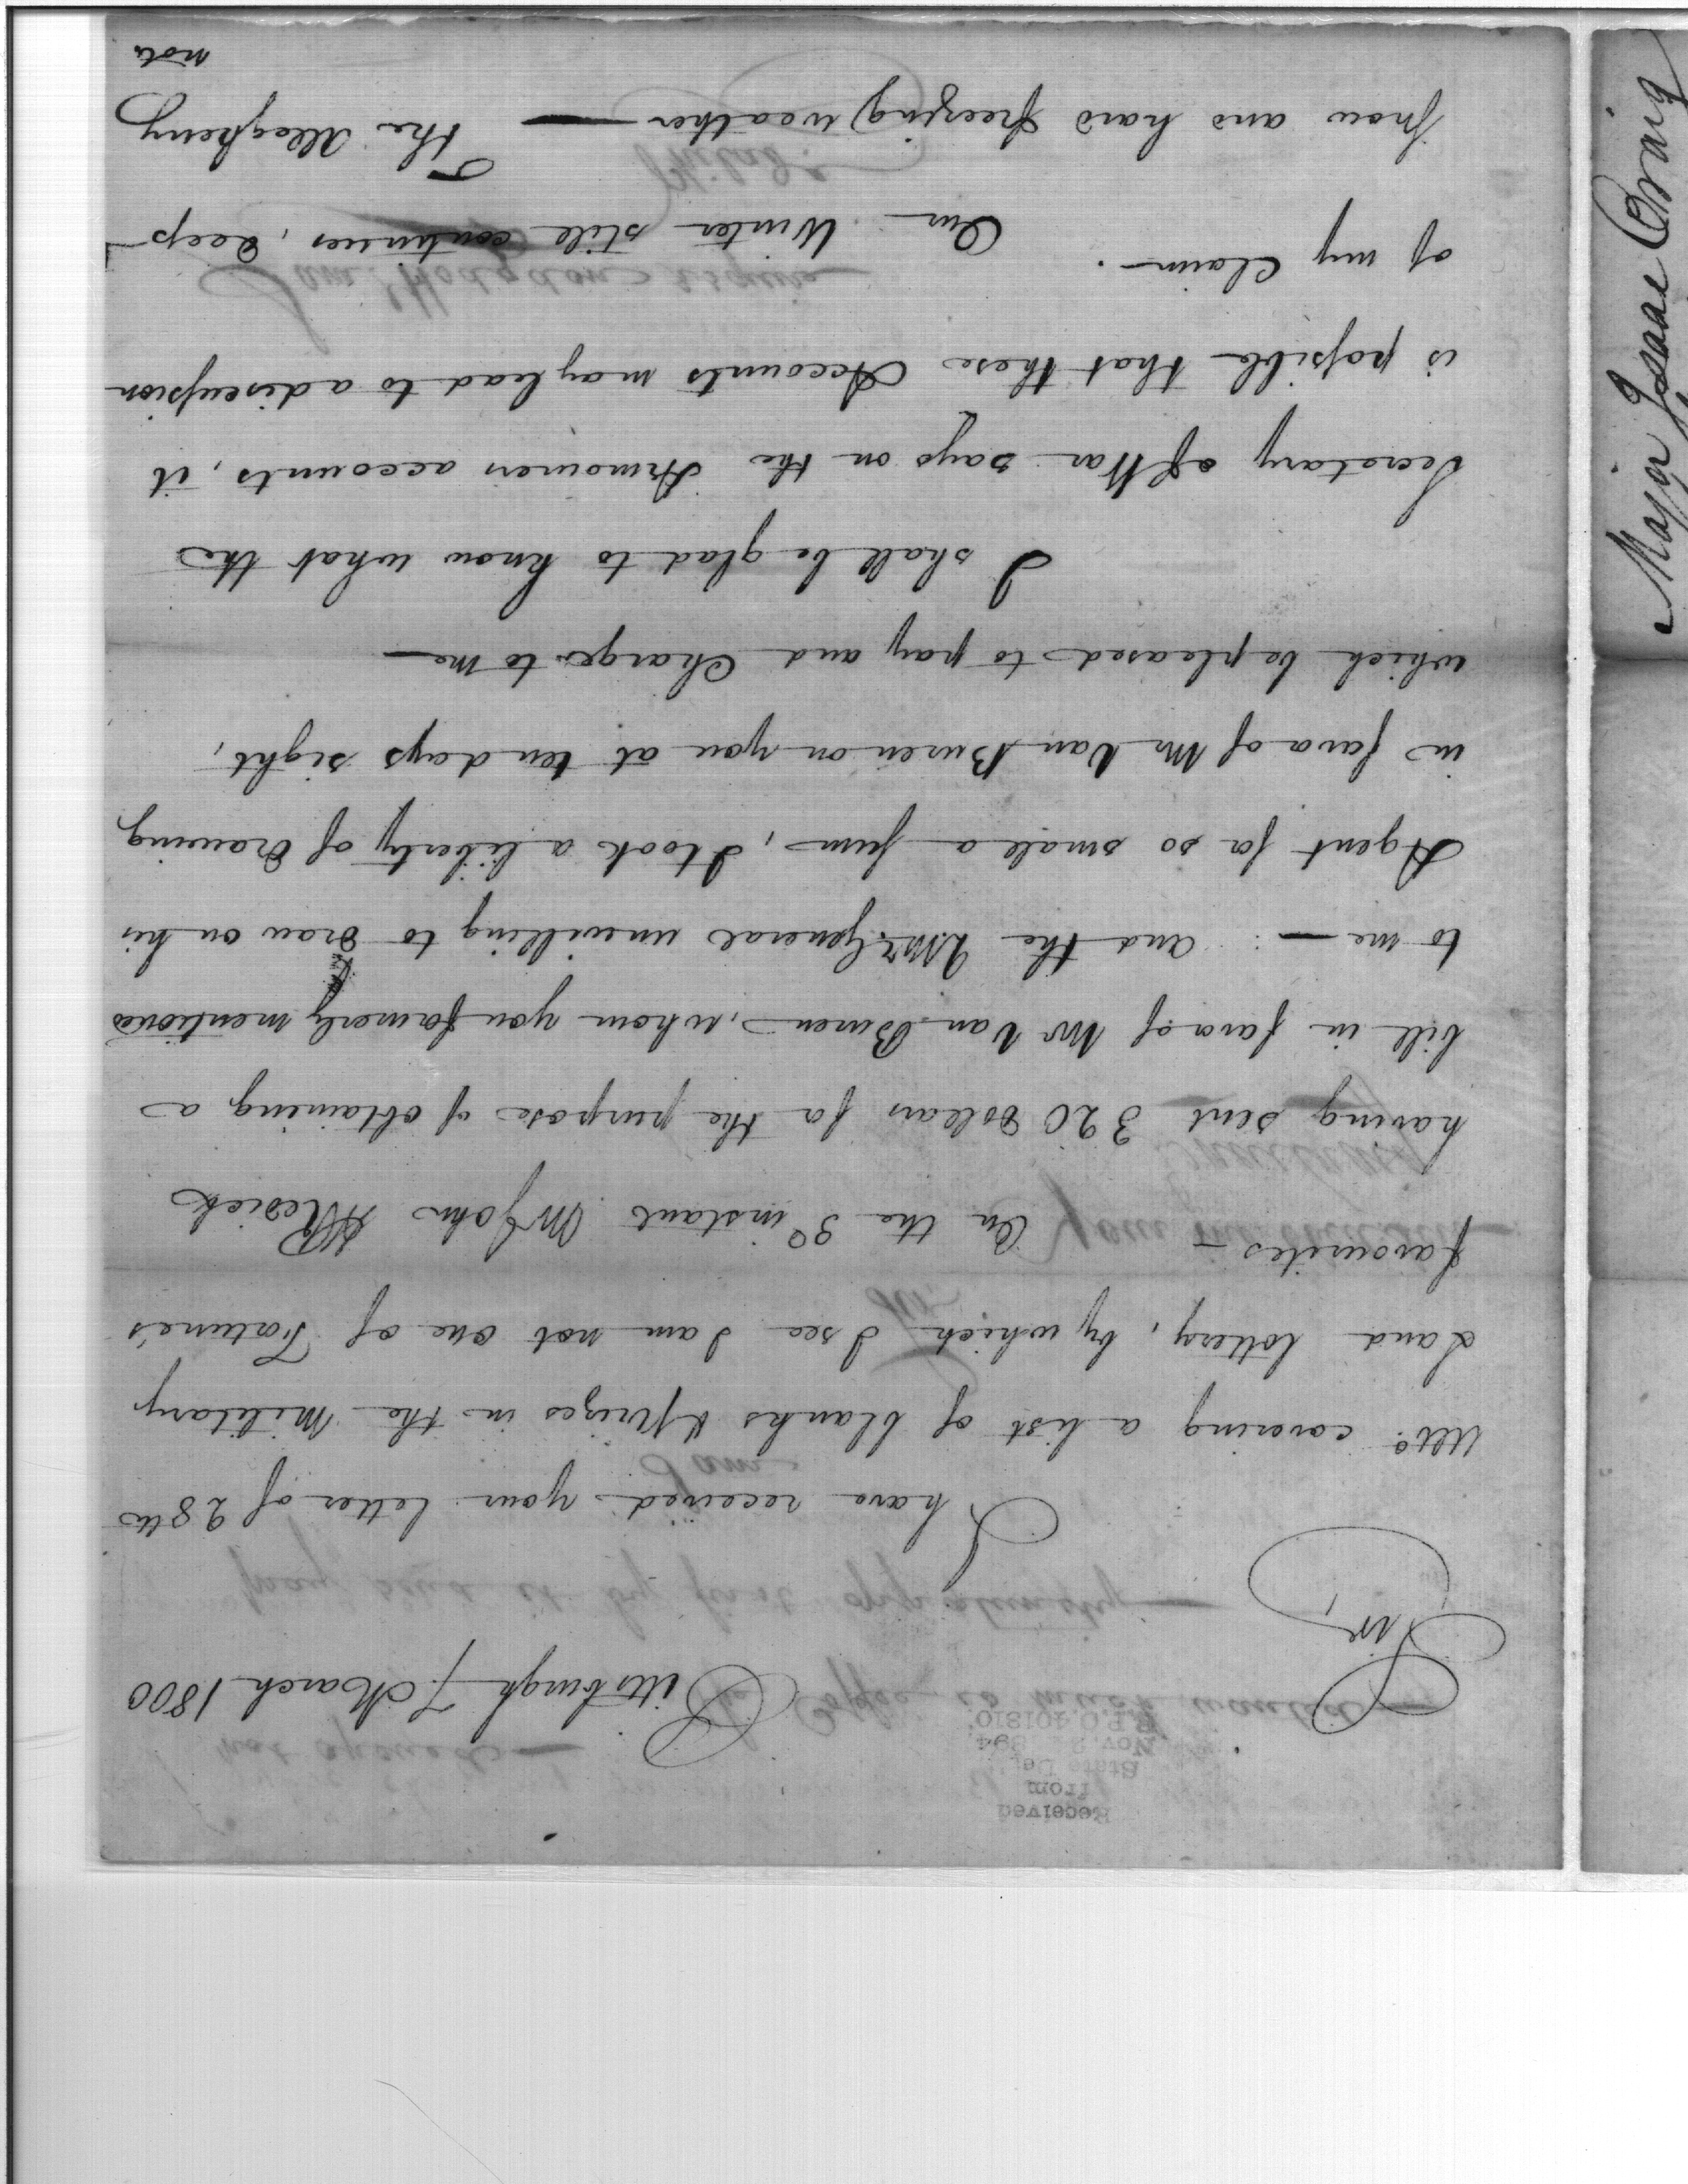 Received
from
State Dep.
Nov. 2 1894
R.P.O. 401810
Pittsburgh 7 March 1800
Sir,
I have received your letter of 28th
Ulto. covering a list of blanks & prizes in the Military
Land lottery, by which I see I am not one of Fortune's
favourites — On the 3d instant Mr John
having sent 320 Dollars for the purpose of obtaining a
bill in favor of Mr Van Buren, whom you formerly mentioned
to me — : and the QMr. General unwilling to draw on his
Agent for so small a sum, I took a liberty of drawing
in favor of Mr Van Buren on you at ten days sight,
which be pleased to pay and Charge to me —
I shall be glad to know what the
Secretary of War says on the Armourers accounts, it
is possible that these Accounts may lead to a discussion
of my Claim. Our Winter still continues, deep
snow and hard freezing weather — The Allegheny
note
Major Isaac Craig